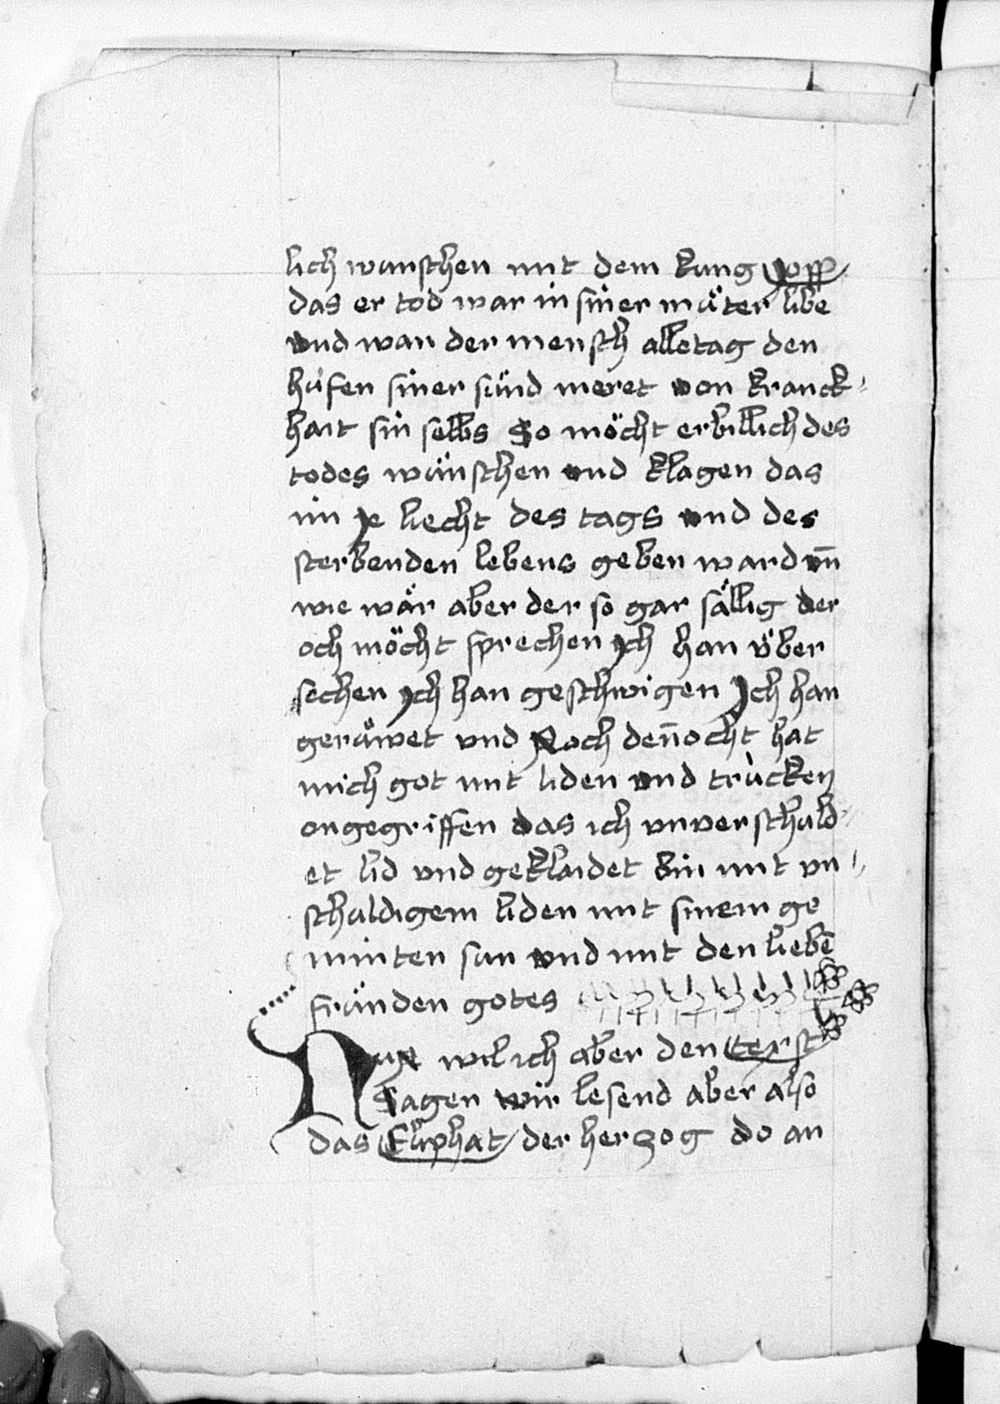 lich wunschen mit dem kung Joff
das er tod war in siner můter libe
vnd wan der mensch alletag den
hufen siner sünd meret von kranck¬
hait sin selbs So möcht er billich des
todes wünschen vnd klagen das
im je liecht des tags vnd des
sterbenden lebens geben ward vn̄
wie wär aber der so gar sällig der
och möcht sprechen ych han v̈ber
sechen ych han geschwigen Jch han
gerüwet vnd Noch den̄ocht hat
mich got mit liden vnd trucken
angegriffen das ich vnverschuld¬
et lid vnd geklaidet bin mit vn¬
schuldigem liden mit sinem ge
minten sun vnd mit den liebē
fründen gotes
Nun wil ich aber den text
Sagen wir lesend aber also
das Eliphat der herzog do an